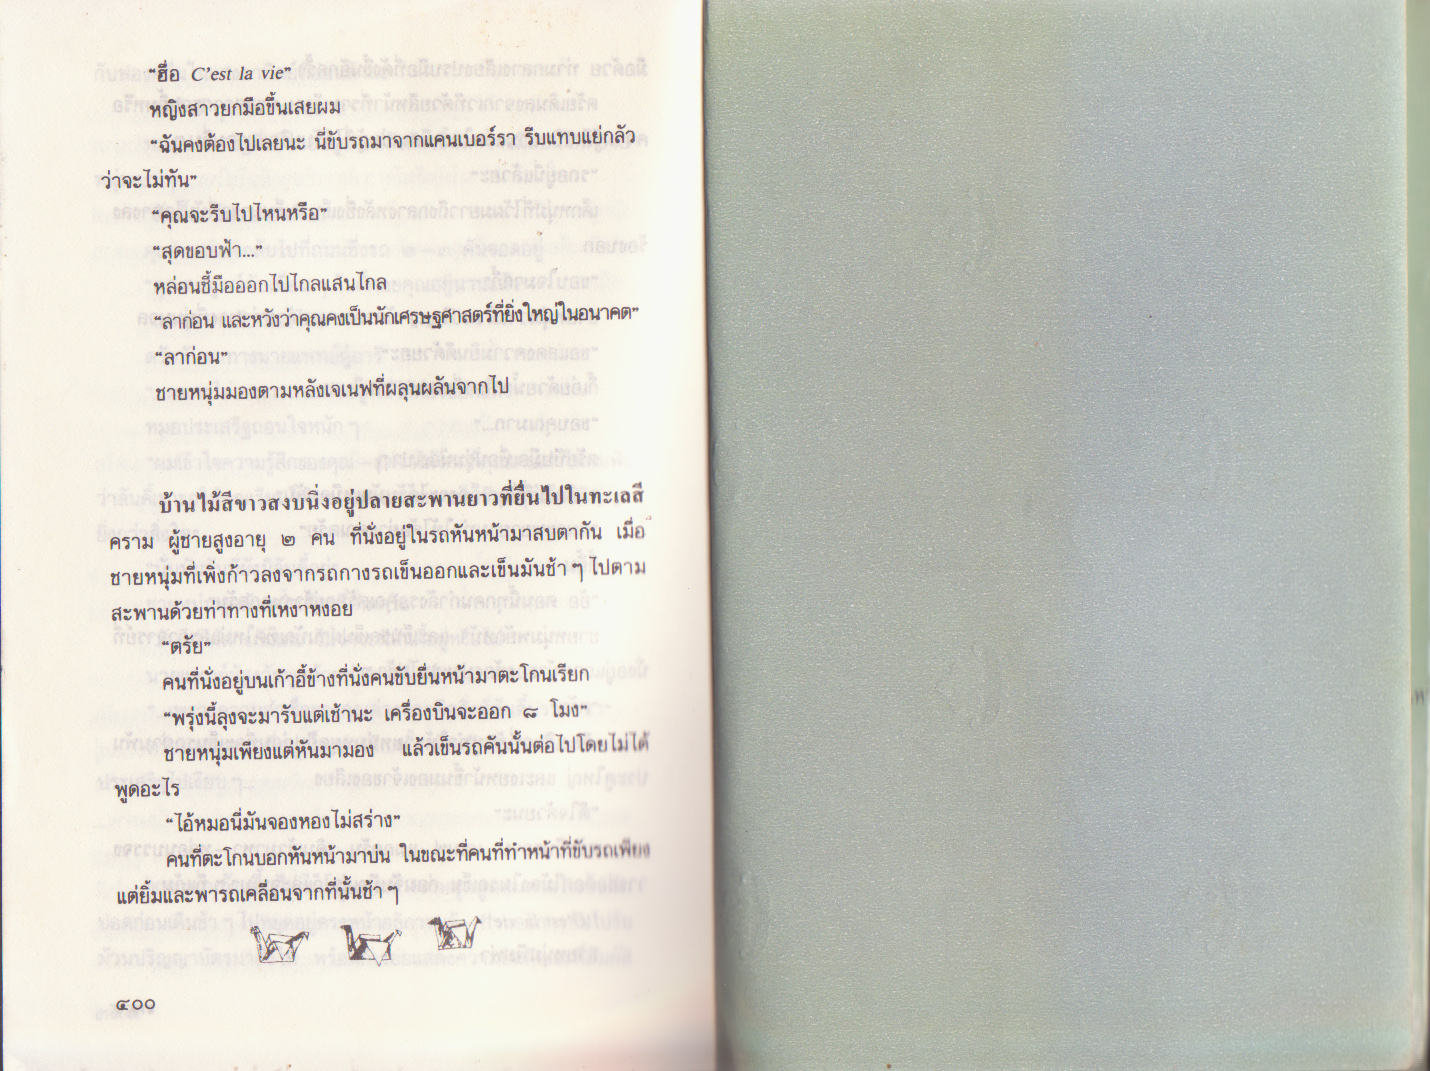 “ฮื่อ C’est la vie”
หญิงสาวยกมือขึ้นเสยผม
“ฉันคงต้องไปเลยนะ นี่ขับรถมาจากแคนเบอร์รา รีบแทบแย่กลัว
ว่าจะไม่ทัน”
“คุณจะรีบไปไหนหรือ”
“สุดขอบฟ้า...”
หล่อนชี้มือออกไปไกลแสนไกล
“ลาก่อน และหวังว่าคุณคงเป็นนักเศรษฐศาสตร์ที่ยิ่งใหญ่ในอนาคต”
“ลาก่อน”
ชายหนุ่มมองตามหลังเจเนฟที่ผลุนผลันจากไป
บ้านไม้สีขาวสงบนิ่งอยู่ปลายสะพานยาวที่ยื่นไปในทะเลสี
คราม ผู้ชายสูงอายุ ๒ คน ที่นั่งอยู่ในรถหันหน้ามาสบตากัน เมื่อ
ชายหนุ่มที่เพิ่งก้าวลงจากรถกางรถเข็นออกและเข็นมันช้า ๆ ไปตาม
สะพานด้วยท่าทางที่เหงาหงอย
“ตรัย”
คนที่นั่งอยู่บนเก้าอี้ข้างที่นั่งคนขับยื่นหน้ามาตะโกนเรียก
“พรุ่งนี้ลุงจะมารับแต่เช้านะ เครื่องบินจะออก ๘ โมง”
ชายหนุ่มเพียงแต่หันมามอง แล้วเข็นรถคันนั้นต่อไปโดยไม่ได้
พูดอะไร
“ไอ้หมอนี่มันจองหองไม่สร่าง”
คนที่ตะโกนบอกหันหน้ามาบ่น ในขณะที่คนที่ทำหน้าที่ขับรถเพียง
แต่ยิ้มและพารถเคลื่อนจากที่นั้นช้า ๆ
๔๐๐